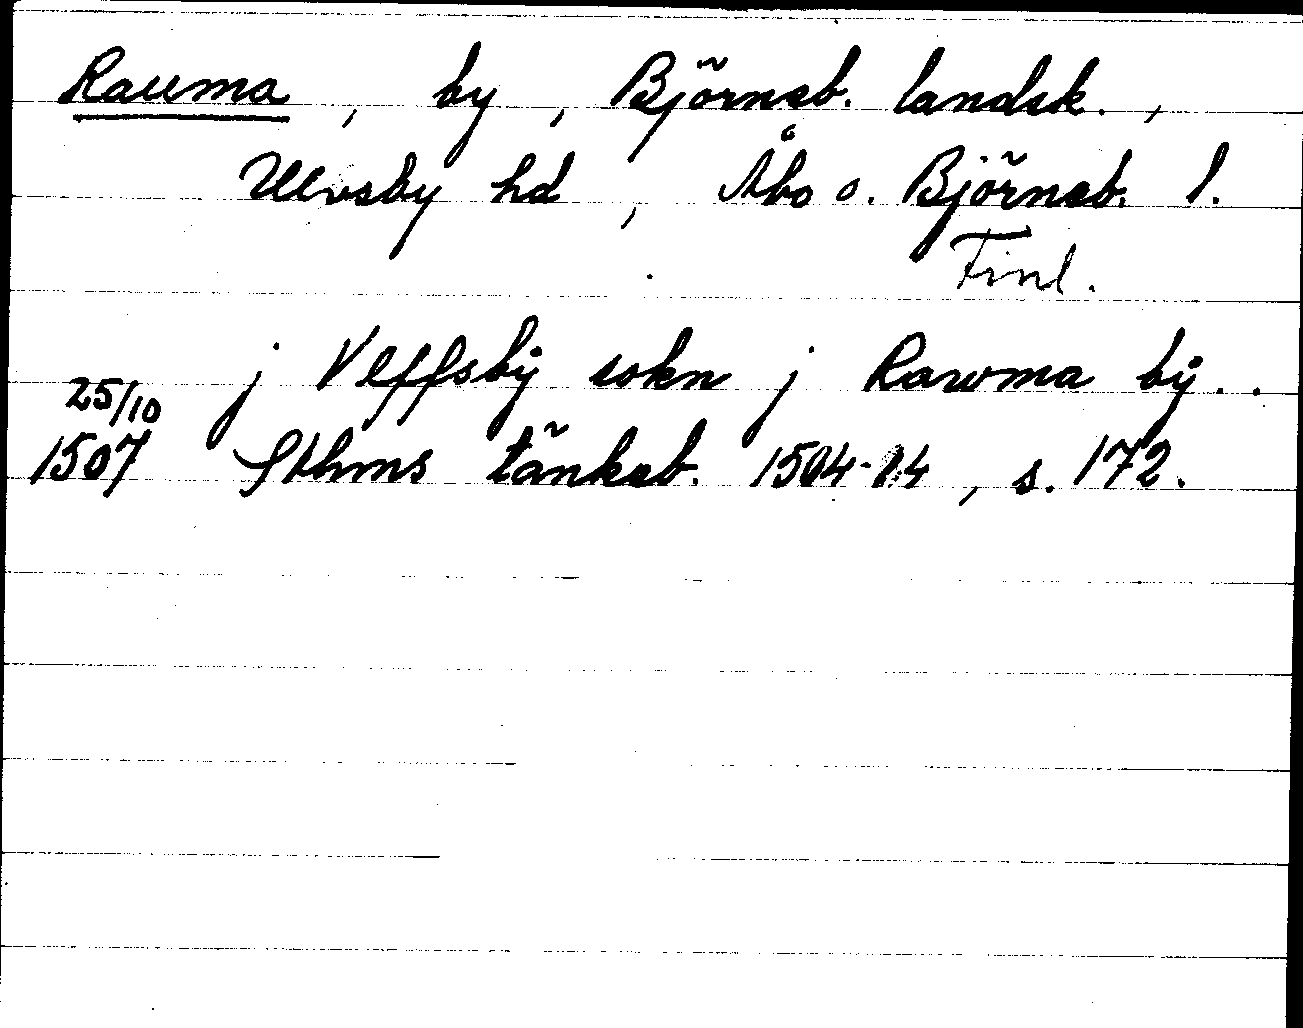 Rauma, by, Björneb. landsk.,
Ulvsby hd, Åbo o. Björneb. l.
Finl.
j Vlffsbÿ sokn j Rawma bÿ..
25/10
1507 Sthms tänkeb. 1504-14, s. 172.